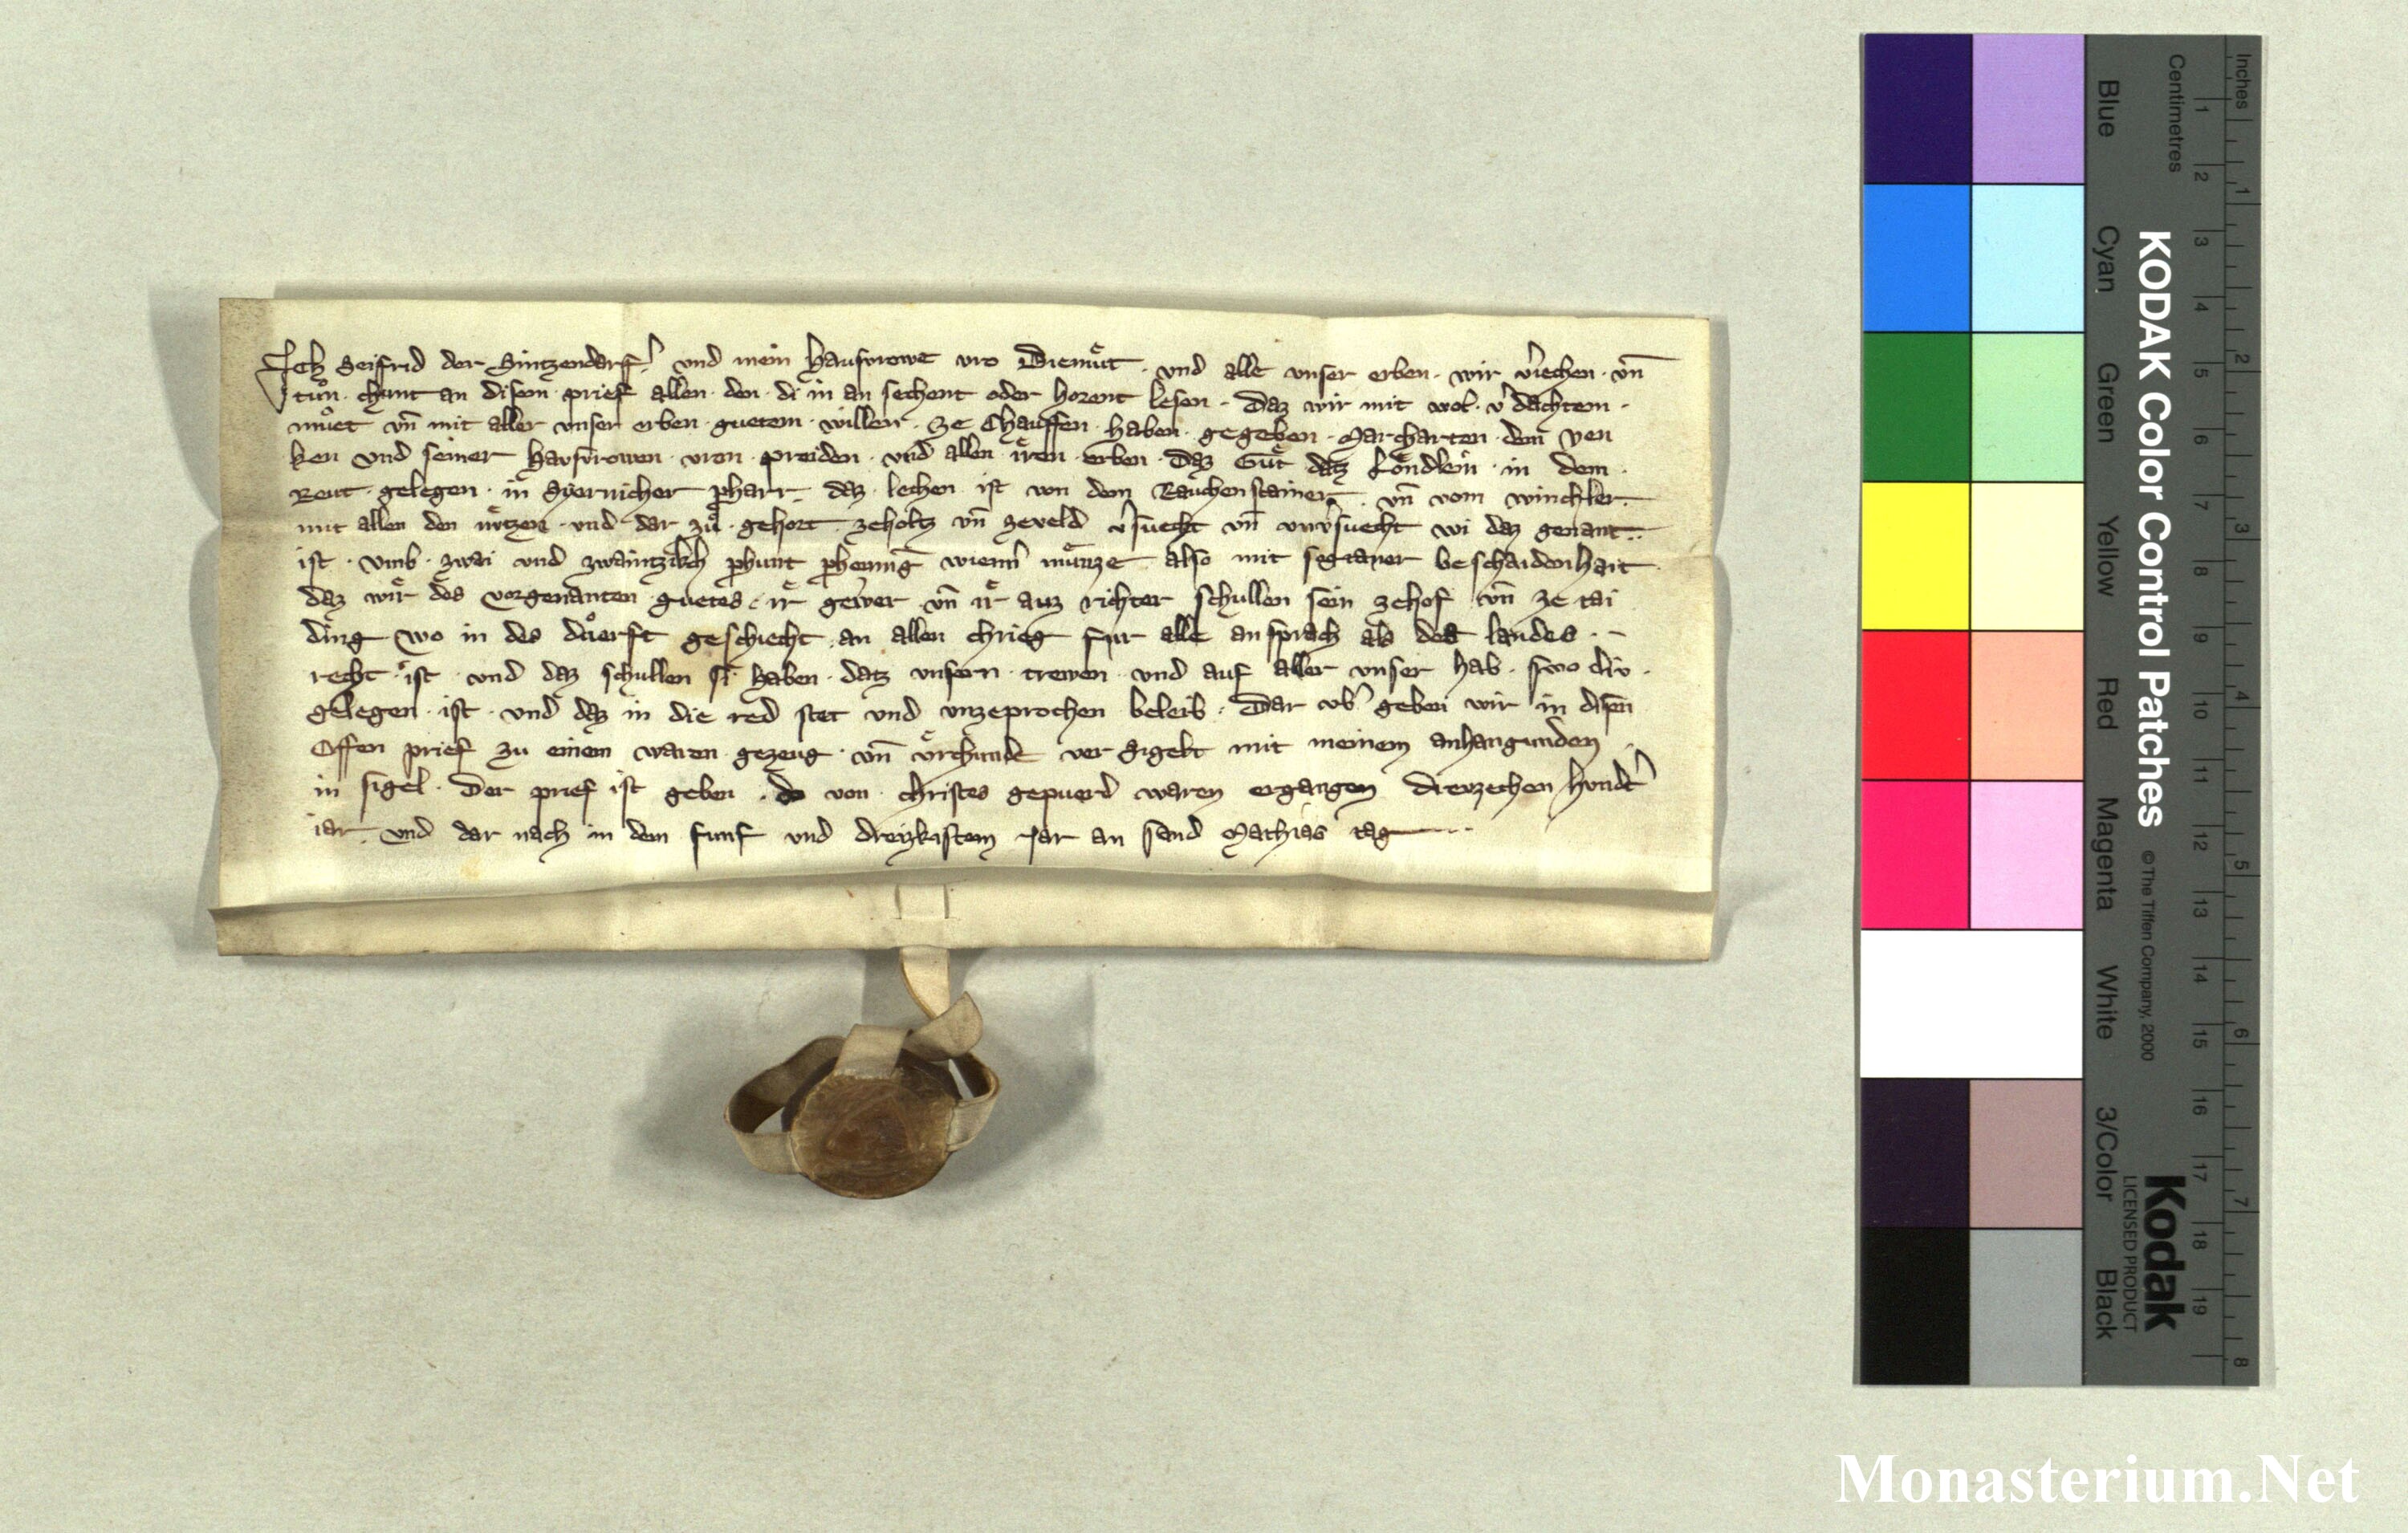 Ich Seifrid der Sintzendorff(er) und mein hausvrowe vro Diemuͤt · und alle unser erben · wir v'iechen · vn̄
tuͦn · chunt an disem · prief allen · den · di in an sechent oder horent lesen · Daz wir mit wol · v'dachtem ·
muͦet vn̄ mit aller unser erben · guetem · willen · ze Chauffen · haben · gegeben · Marcharten · dem ven
ken und seiner hausvrowen · vron · preiden · und allen · iren · erben · Daz Guͤt datz · in dem ·
Reut · gelegen · in Syernicher pharr · daz · lechen ist von dem Rauchenstainer · vn̄ vom winchler ·
mit allen den nuͤtzen · und dar zuͦ · gehort · zeholtz vn̄ zeveld v'suecht vn̄ unv'suecht wi daz genant
ist · umb · zwai und zwaintzikch phunt phenning wienn' muͤnze also mit sogtaner beschaidenhait
daz wir des vorgenanten guetes · ir gewer vn̄ ir auz richter schullen sein zehof vn̄ ze tai
ding wo in des duͦerft geschiecht an allen chrieg fur alle ansprach als des landes ·
recht · ist · und daz schullen si haben · datz unsern · trewen · und auf aller unser hab · swo div ·
gelegen · ist · und daz in die red stet und unzeprochen beleib · Dar vb' geben wir in disen
Offen prief zu einem waren · gezeug · vn̄ uͤrchunde ver sigelt mit meinem anhangunden
in sigel · Der prief ist geben · do von · christes gepuerd waren ergangen Dreuzechen hundt'
iar · und dar nach in dem funf und dreizkistem Jar an sand Mathias tag
KODAK Color Control Patches
© The Tiffen Company, 2000
Kodak
LICENSED PRODUCT
Inches
1 2 3 4 5 6 7 8
Centimetres
1 2 3 4 5 6 7 8 9 10 11 12 13 14 15 16 17 18 19
Blue Cyan Green Yellow Red Magenta White 3/Color Black
Monasterium.Net